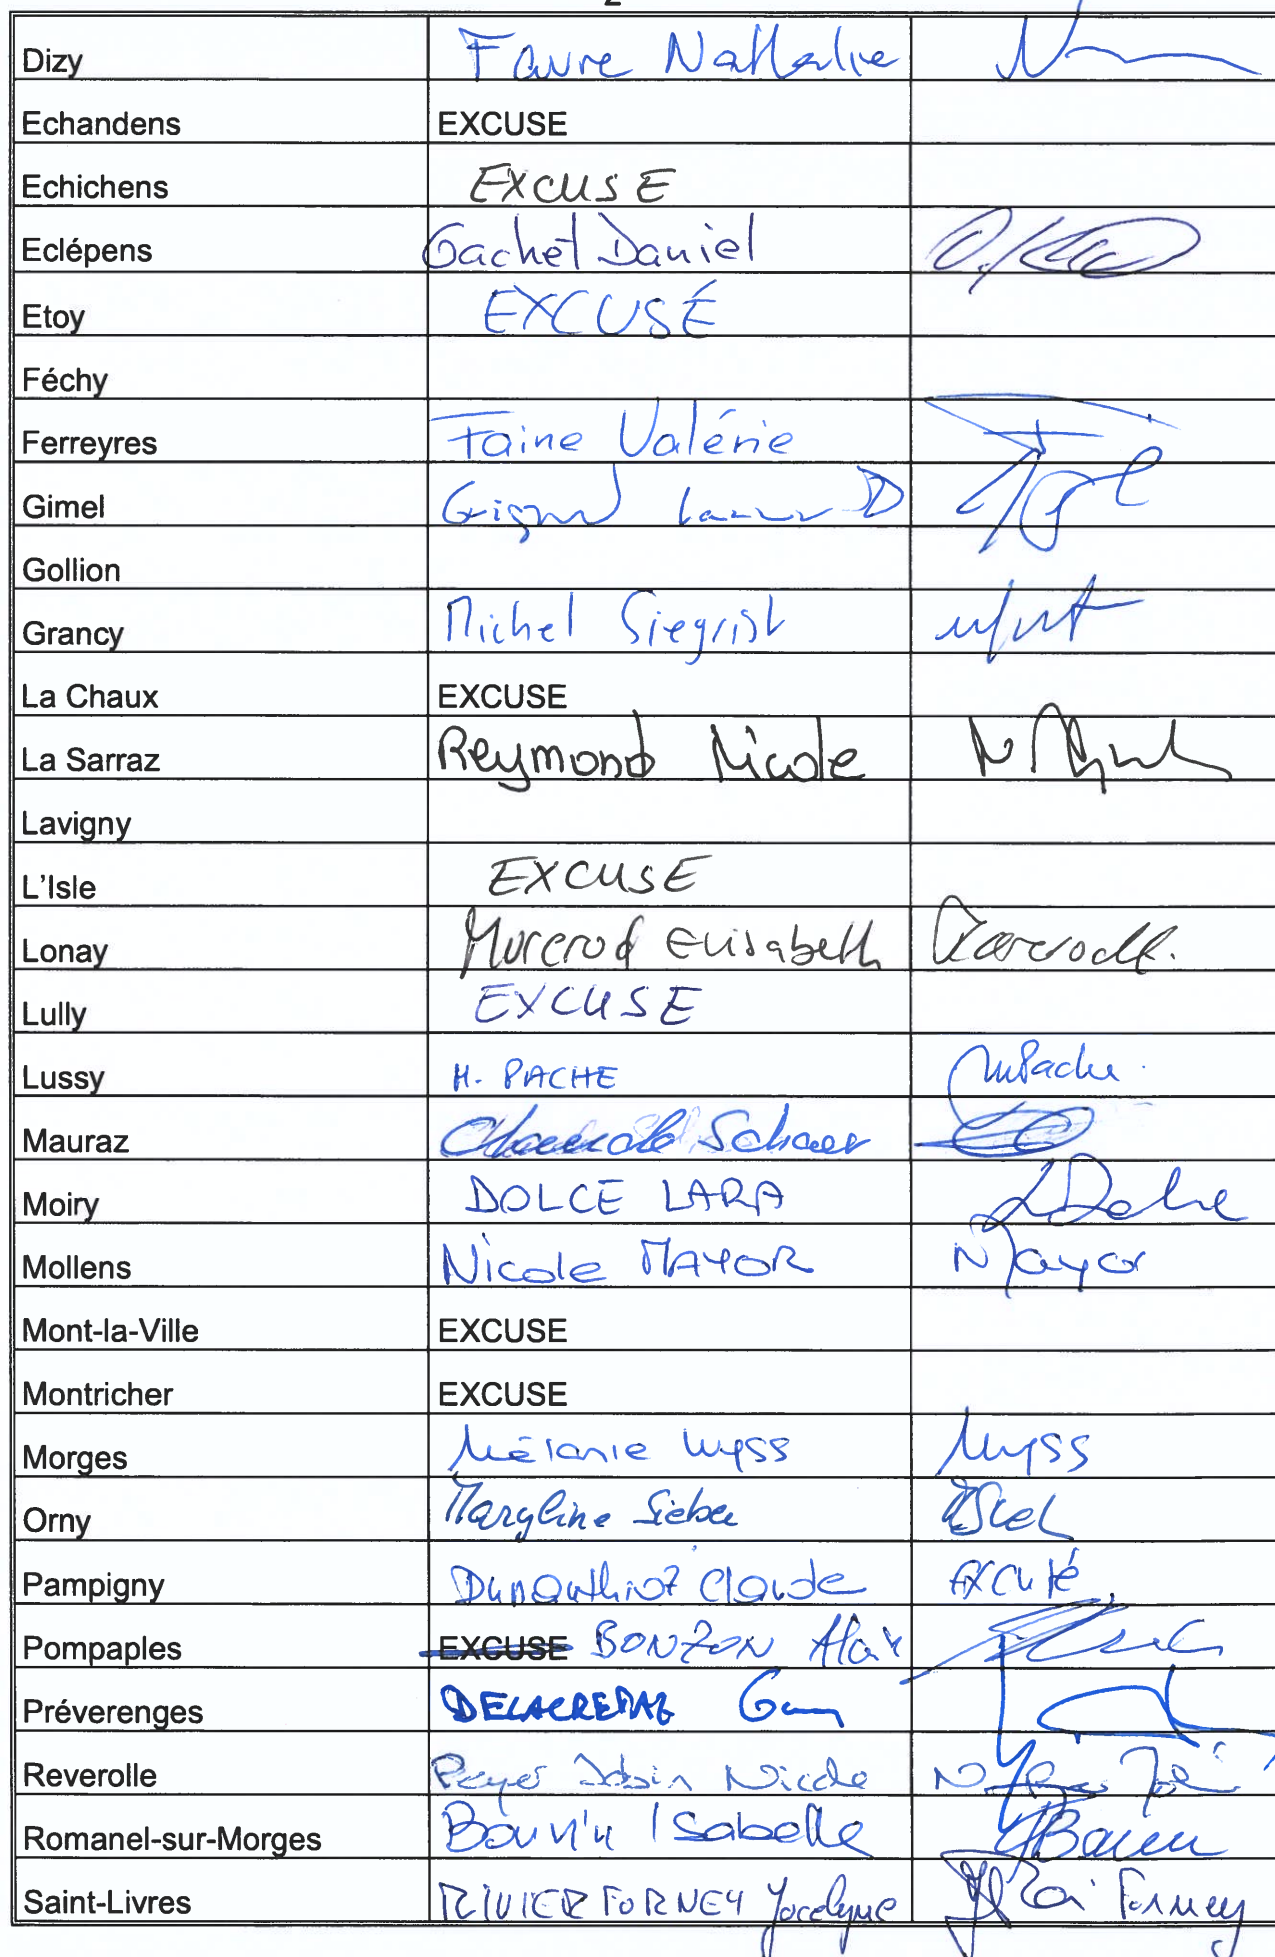 2
Dizy Favre Nathalie
Echandens EXCUSE
Echichens EXCUSE
Eclépens Gachet Daniel
Etoy EXCUSÉ
Féchy
Ferreyres Faine Valérie
Gimel
Gollion
Grancy Michel Siegrist
La Chaux EXCUSE
La Sarraz Reymond Nicole
Lavigny
L'Isle EXCUSE
Lonay Morerod Elisabeth
Lully EXCUSE
Lussy M. PACHE MPache
Mauraz Schaer
Moiry DOLCE LARA LDolce
Mollens Nicole MAYOR NMayor
Mont-la-Ville EXCUSE
Montricher EXCUSE
Morges Mélanie Wyss MWyss
Orny Maryline Sieber
Pampigny Claude excusé
Pompaples EXCUSE BONZON Alain
Préverenges DELACRETAZ Guy
Reverolle Peyer Jobin Nicole
Romanel-sur-Morges Isabelle
Saint-Livres RIVIER FORNEY Jocelyne Forney